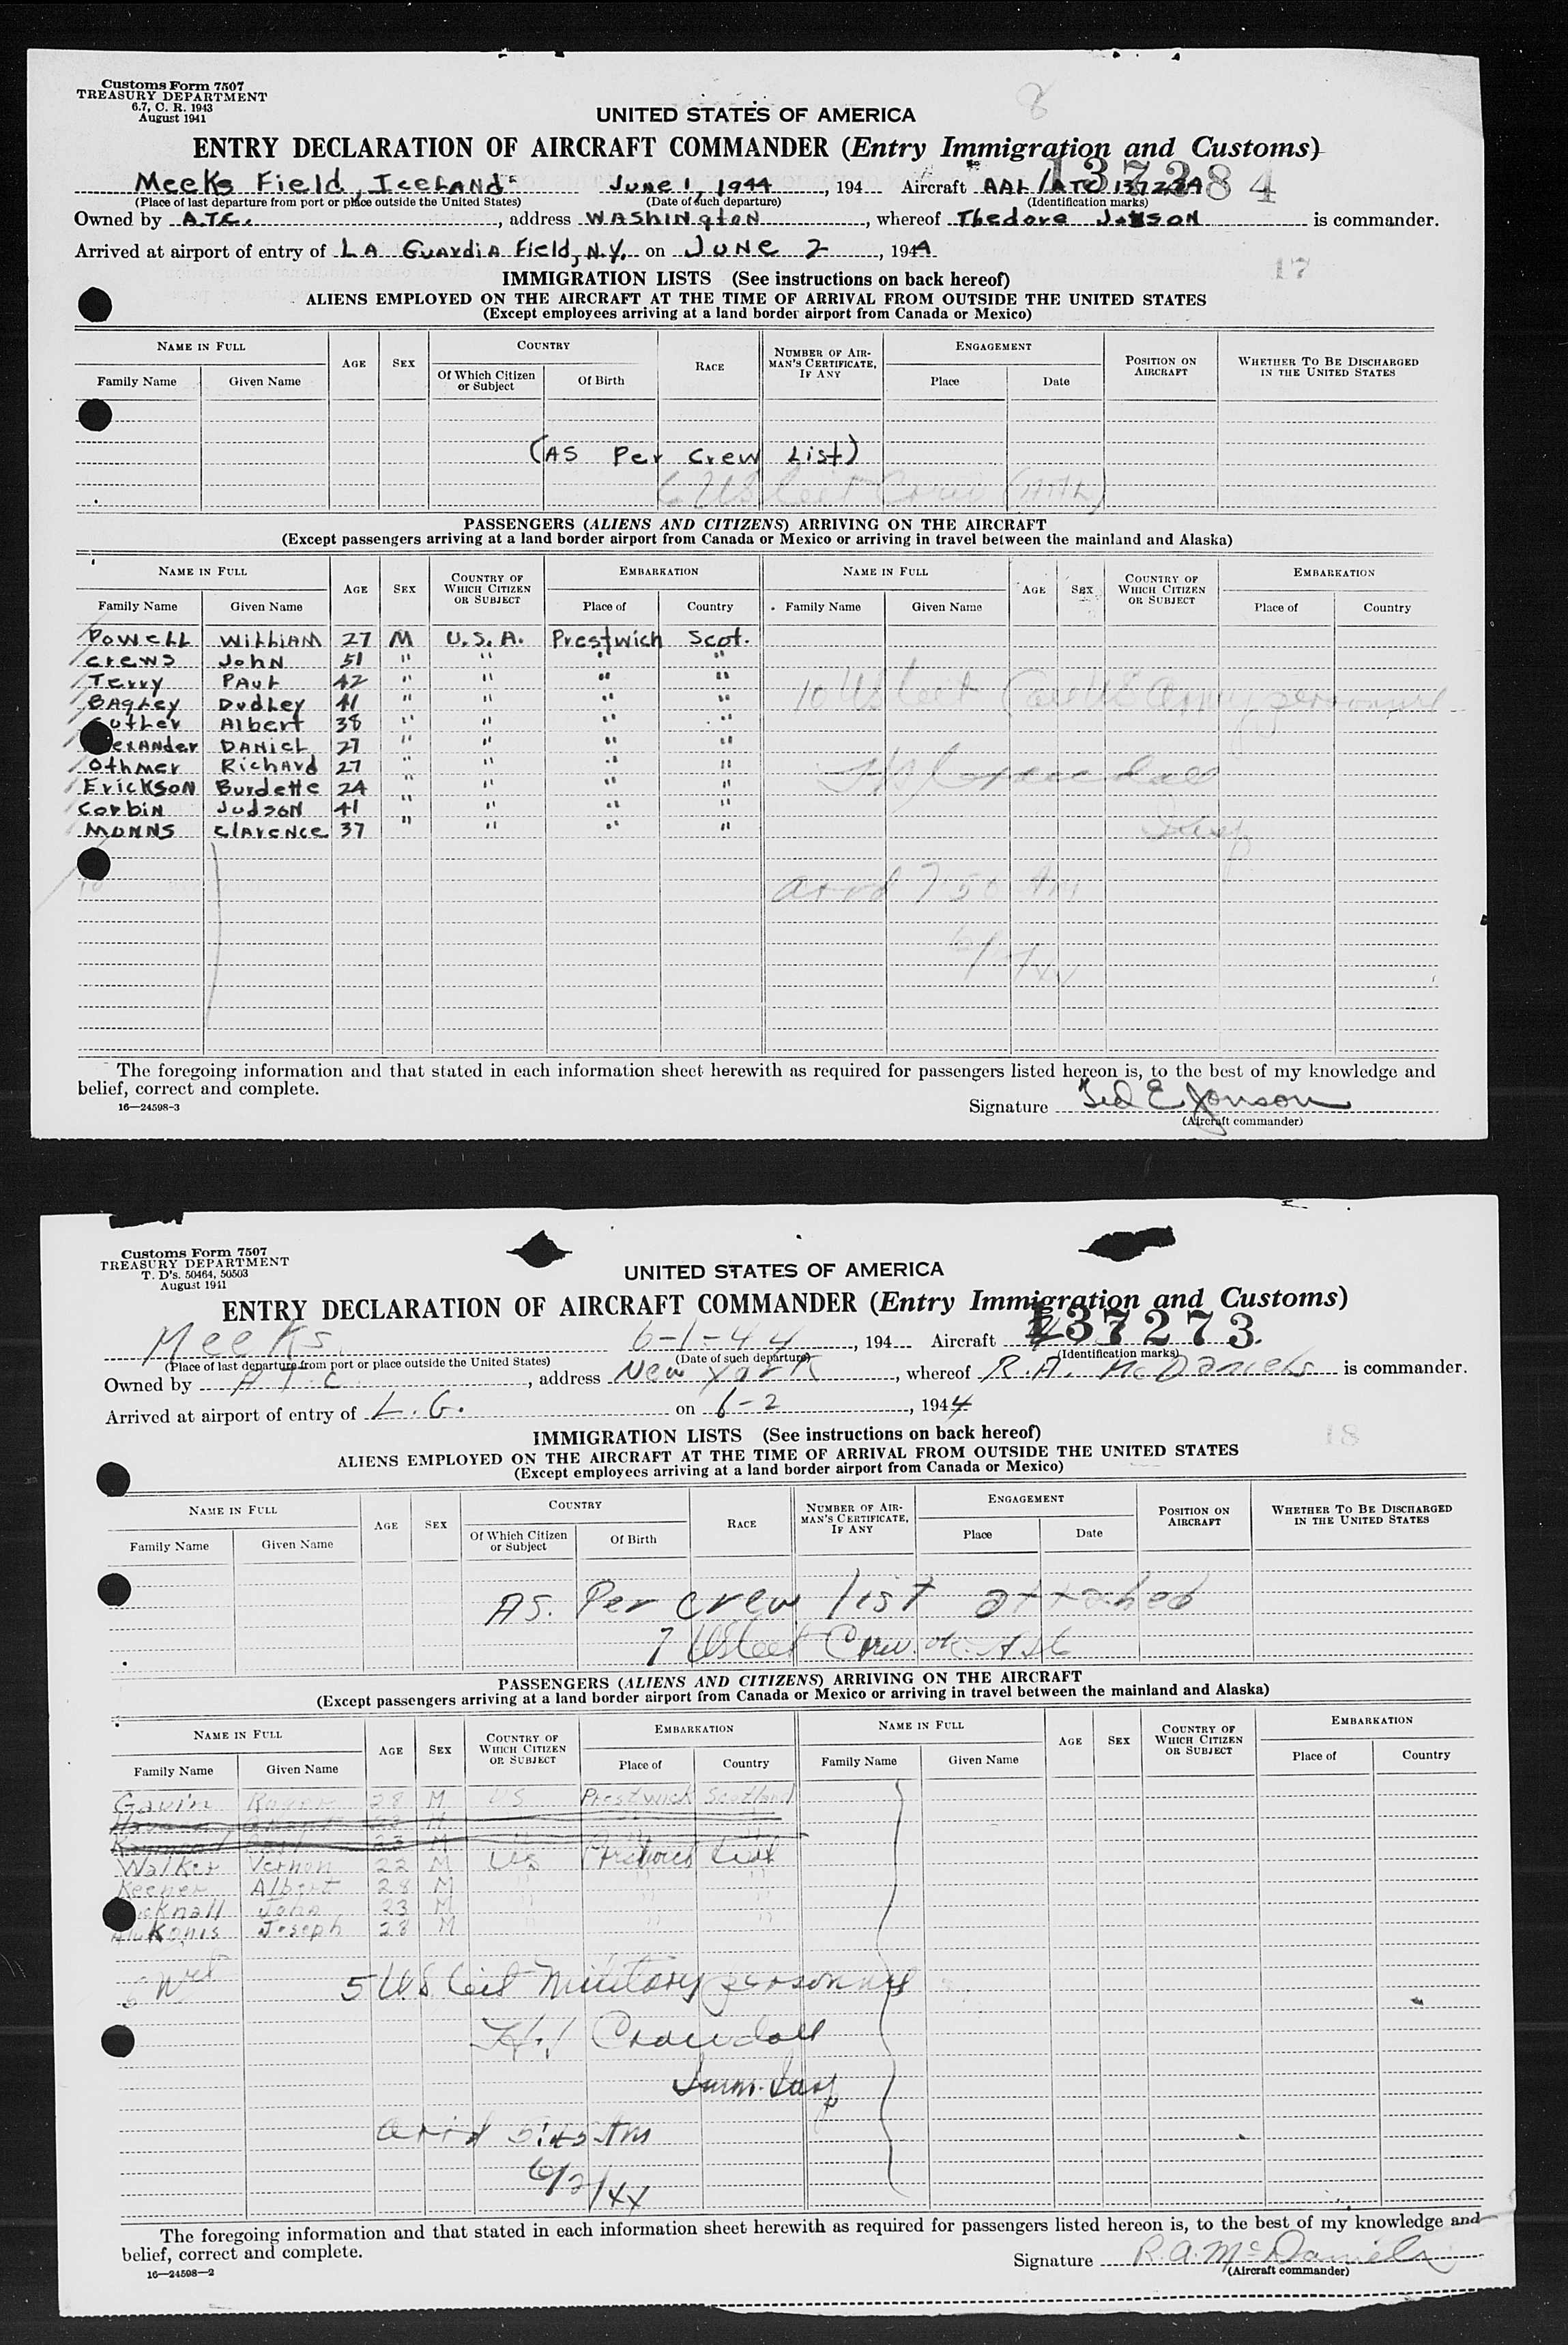 Customs Form 7507
TREASURY DEPARTMENT
6.7, C. R. 1943
August 1941
8
UNITED STATES OF AMERICA
ENTRY DECLARATION OF AIRCRAFT COMMANDER (Entry Immigration and Customs)
137284
Meeks Field, Iceland June 1, 1944, 194 Aircraft AAL/ATC 137284
(Place of last departure from port or place outside the United States) (Date of such departure) (Identification marks)
Owned by A.T.C., address Washington, whereof Thedore Jonson is commander.
Arrived at airport of entry of La Guardia Field, N.Y. on June 2, 1944
17
IMMIGRATION LISTS (See instructions on back hereof)
ALIENS EMPLOYED ON THE AIRCRAFT AT THE TIME OF ARRIVAL FROM OUTSIDE THE UNITED STATES
(Except employees arriving at a land border airport from Canada or Mexico)
NAME IN FULL AGE SEX COUNTRY RACE NUMBER OF AIRMAN'S CERTIFICATE, IF ANY ENGAGEMENT POSITION ON AIRCRAFT WHETHER TO BE DISCHARGED IN THE UNITED STATES
Family Name Given Name Of Which Citizen or Subject Of Birth Place Date
(As Per Crew List)
6 US Crew (AAL)
PASSENGERS (ALIENS AND CITIZENS) ARRIVING ON THE AIRCRAFT
(Except passengers arriving at a land border airport from Canada or Mexico or arriving in travel between the mainland and Alaska)
NAME IN FULL AGE SEX COUNTRY OF WHICH CITIZEN OR SUBJECT EMBARKATION NAME IN FULL AGE SEX COUNTRY OF WHICH CITIZEN OR SUBJECT EMBARKATION
Family Name Given Name Place of Country Family Name Given Name Place of Country
Powell William 27 M U.S.A. Prestwich Scot.
Crews John 51 " " " "
Terry Paul 42 " " " "
Bagley Dudley 41 " " " "
Cutler Albert 38 " " " "
exander Daniel 27 " " " "
Othmer Richard 27 " " " "
Erickson Burdette 24 " " " "
Corbin Judson 41 " " " "
Munns Clarence 37 " " " "
10 US Army personnel
10
arrd 7 50 Am
The foregoing information and that stated in each information sheet herewith as required for passengers listed hereon is, to the best of my knowledge and
belief, correct and complete.
16—24598-3
Signature Ted E Jonson
(Aircraft commander)
Customs Form 7507
TREASURY DEPARTMENT
T. D's. 50464, 50503
August 1941
UNITED STATES OF AMERICA
ENTRY DECLARATION OF AIRCRAFT COMMANDER (Entry Immigration and Customs)
137273
Meeks 6-1-44, 194 Aircraft
(Place of last departure from port or place outside the United States) (Date of such departure) (Identification marks)
Owned by A T C, address New York, whereof R.A. McDaniels is commander.
Arrived at airport of entry of L.G. on 6-2, 1944
18
IMMIGRATION LISTS (See instructions on back hereof)
ALIENS EMPLOYED ON THE AIRCRAFT AT THE TIME OF ARRIVAL FROM OUTSIDE THE UNITED STATES
(Except employees arriving at a land border airport from Canada or Mexico)
NAME IN FULL AGE SEX COUNTRY RACE NUMBER OF AIRMAN'S CERTIFICATE, IF ANY ENGAGEMENT POSITION ON AIRCRAFT WHETHER TO BE DISCHARGED IN THE UNITED STATES
Family Name Given Name Of Which Citizen or Subject Of Birth Place Date
As. Per crew list attached
7 US Crew
PASSENGERS (ALIENS AND CITIZENS) ARRIVING ON THE AIRCRAFT
(Except passengers arriving at a land border airport from Canada or Mexico or arriving in travel between the mainland and Alaska)
NAME IN FULL AGE SEX COUNTRY OF WHICH CITIZEN OR SUBJECT EMBARKATION NAME IN FULL AGE SEX COUNTRY OF WHICH CITIZEN OR SUBJECT EMBARKATION
Family Name Given Name Place of Country Family Name Given Name Place of Country
Gavin Roger 28 M US Prestwick Scotland
23 M
Walker Vernon 22 M US
Keener Albert 28 M " " "
cknall John 23 M " " "
Joseph 28 M " " "
5 US military personnel
Crandall
Imm. Insp
arrd 5:45 Am
6/2/44
The foregoing information and that stated in each information sheet herewith as required for passengers listed hereon is, to the best of my knowledge and
belief, correct and complete.
16—24598-2
Signature R.A. McDaniels
(Aircraft commander)